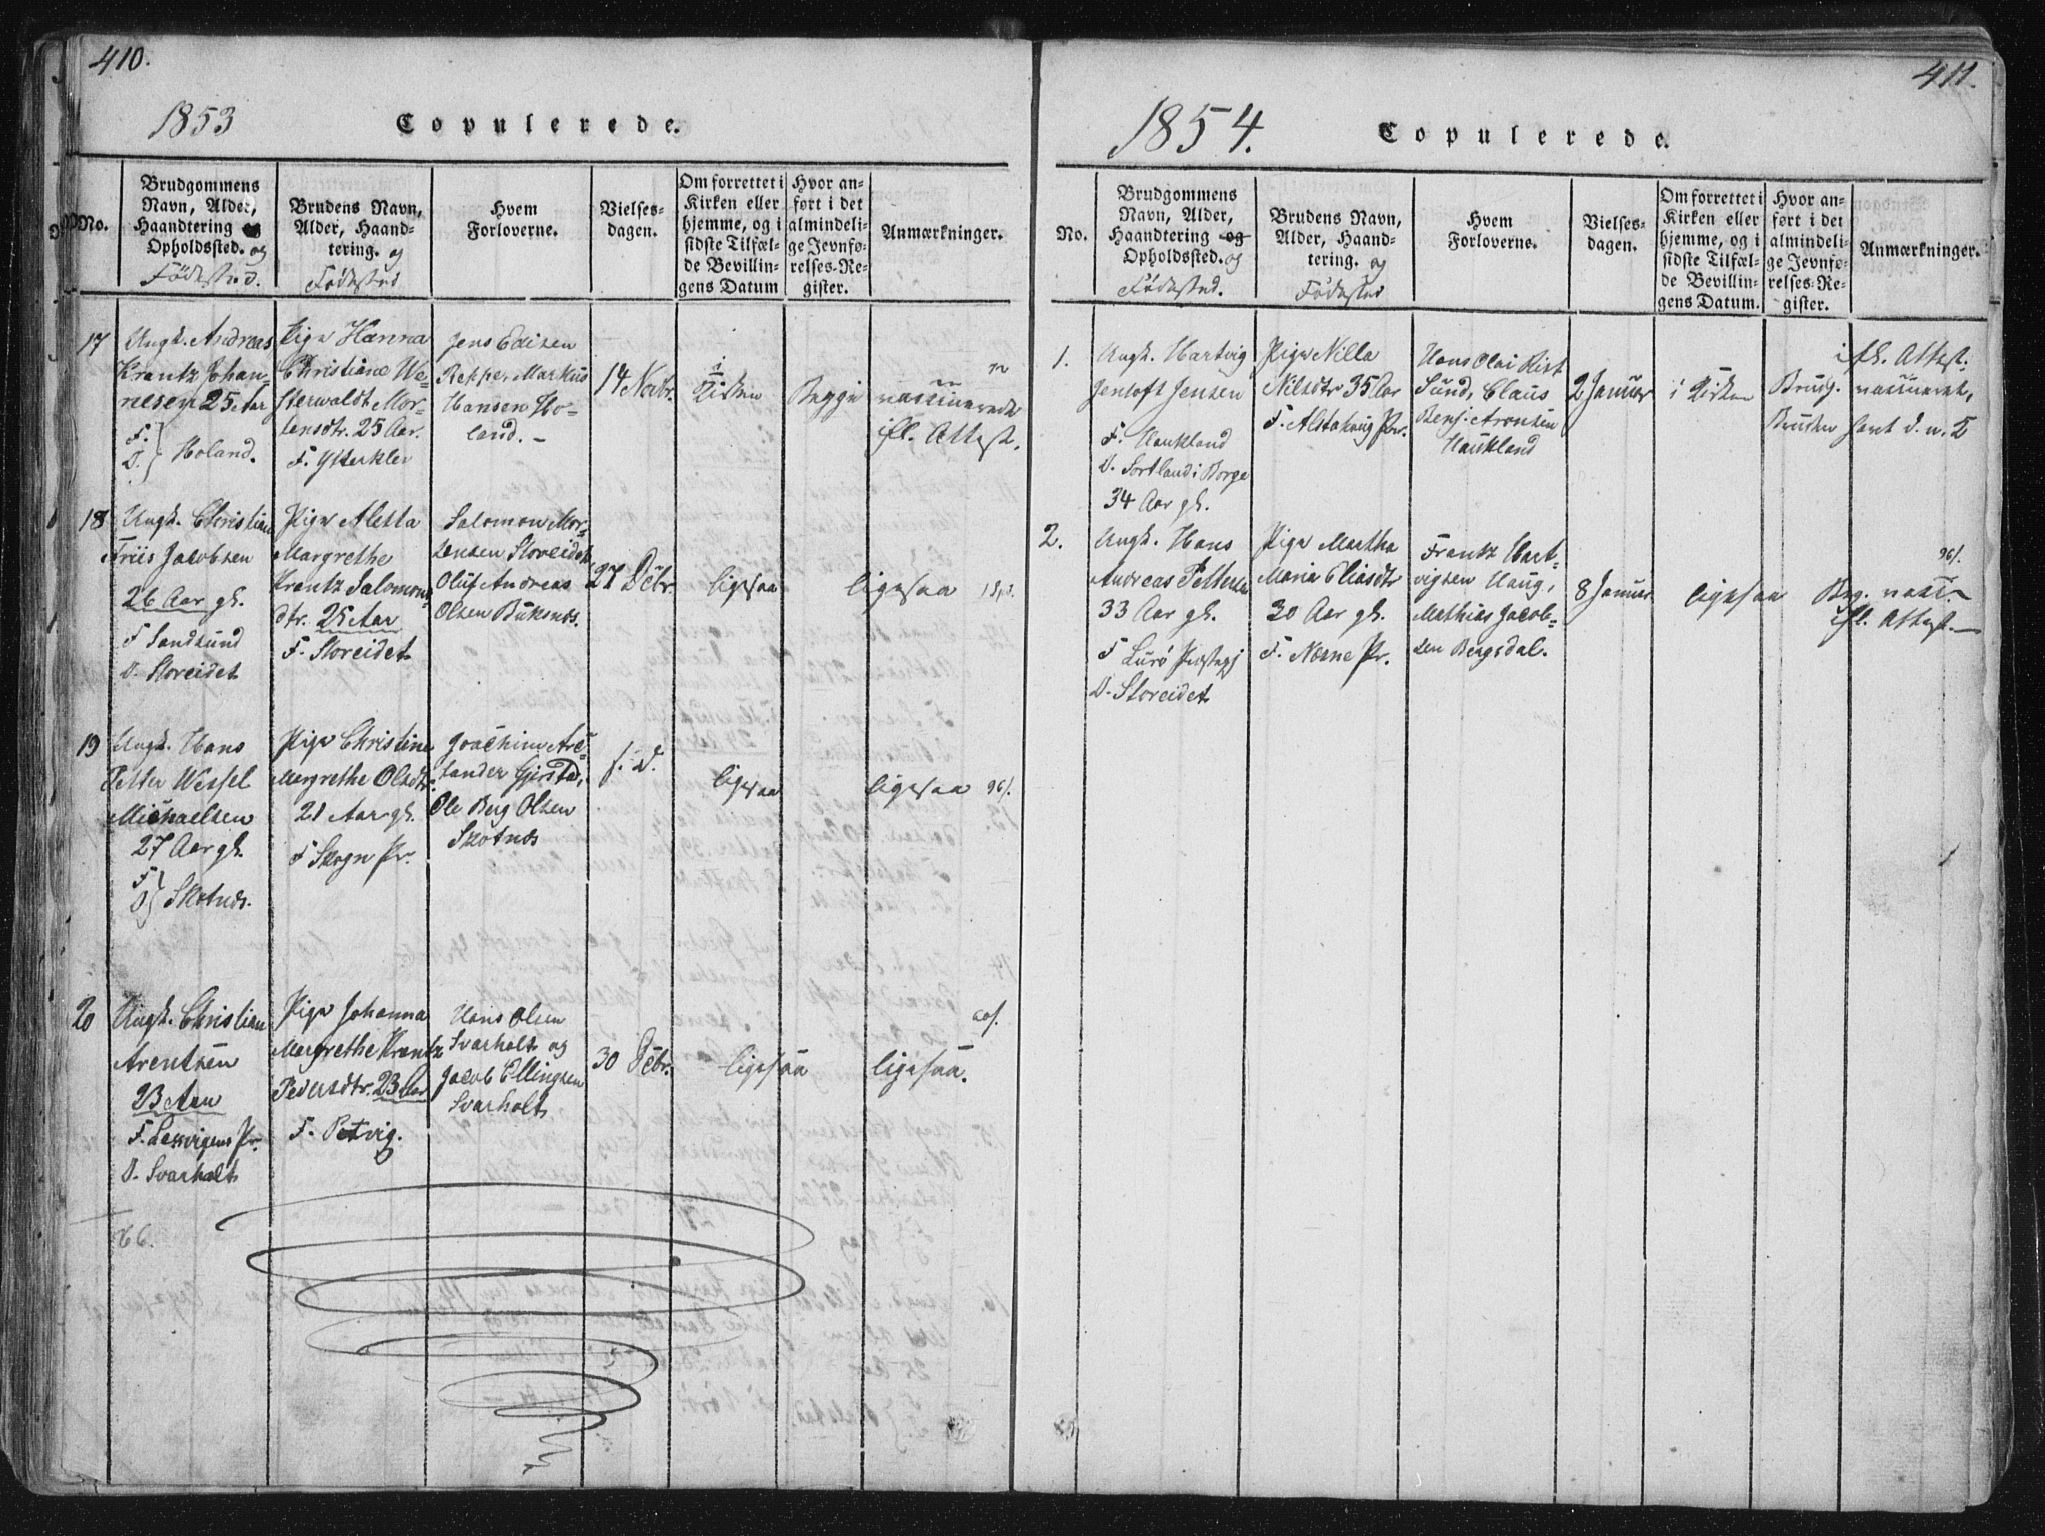 410.
1853 Copulerede.
No.
Brudgommens
Navn, Alder,
Haandtering og
Opholdssted. og
Fødested.
Brudens Navn,
Alder, Haand-
tering. og
Fødested
Hvem
Forloverne.
Vielses-
dagen.
Om forrettet i
Kirken eller
hjemme, og i
sidste Tilfæl-
de Bevillin-
gens Datum
Hvor an-
ført i det
almindeli-
ge Jevnfø-
relses-Re-
gister.
Anmærkninger.
17
Ungk. Andreas
Krantz Johan-
nesen 25 Aar
F.
D. Holand.
Pige Hanna
Christiane We-
sterwaldt Mor-
tensdtr. 25 Aar.
F. Ytterklev
Jens Edisen
Reppe, Markus
Hansen Ho-
land. -
14 Novbr.
i
Kirken
Begge
vaccinerede
ifl. Attest.
18
Ungk. Christian
Friis Jacobsen
26 Aar gl.
F Sandsund
D. Storeidet
Pige Aletta
Margrethe
Krantz Salomons
dtr. 25 Aar
F. Storeidet
Salomon Mor-
tensen Storeidet
Oluf Andreas
Olsen Buksnæs.
27 Decbr.
ligesaa
ligesaa
19
Ungk. Hans
Petter Wessel
Michaelsen
27 Aar gl.
F
D Skotnæs.
Pige Christine
Margrethe Olsdtr.
21 Aar gl.
F Skogn Pr.
Joachim Are-
tander Gjerstad,
Ole Berg Olsen
Skotnæs
s. D.
ligesaa
ligesaa 96/.
20
Ungk. Christian
Arentsen
23 Aar
F. Lessvigens Pr.
D. Svarholt
Pige Johanna
Margrethe Krantz
Pedersdtr. 23 Aar
F. Petvig.
Hans Olsen
Svarholt og
Jacob Ellingsen
Svarholt
30 Decbr.
ligesaa
ligesaa.
66.
411.
1854. Copulerede.
No.
Brudgommens
Navn, Alder,
Haandtering og
Opholdssted. og
Fødested.
Brudens Navn,
Alder, Haand-
tering. og
Fødested
Hvem
Forloverne.
Vielses-
dagen.
Om forrettet i
Kirken eller
hjemme, og i
sidste Tilfæl-
de Bevillin-
gens Datum.
Hvor an-
ført i det
almindeli-
ge Jevnfø-
relses-Re-
gister.
Anmærkninger.
1.
Ungk. Hartvig
Jentoft Jensen
F. Haukland
D. Sortland i Borge
34 Aar gl.
Pige Nilla
Nilsdtr 35 Aar
F. Alstahaug Pr.
Hans Olai Rist
Sund, Claus
Benj. Aronsen
Haukland
2 Januar
i Kirken
Brudg.
Bruden
ifl. Attest.
vaccineret,
havt d. n. K
2.
Ungk. Hans
Andreas Pettersen
33 Aar gl.
F Lurø Præstegj
D. Storeidet
Pige Martha
Maria Eliasdtr
30 Aar gl.
F. Næsne Pr.
Frantz Hart-
vigsen Haug,
Mathias Jacob-
sen Bergsdal.
8 Januar
ligesaa
Beg. vacc
ifl. Attest.
96/.